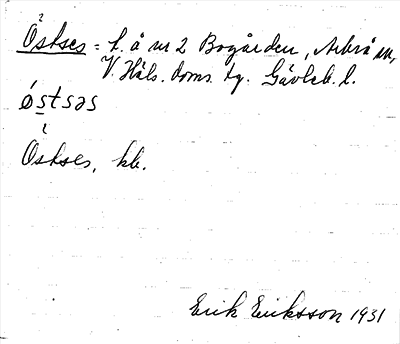 Östses = l. å nr 2 Bogården, Arbrå sn,
V. Häls. doms. tg. Gävleb. l.
östsəs
Östses, kb.
Erik Eriksson 1931